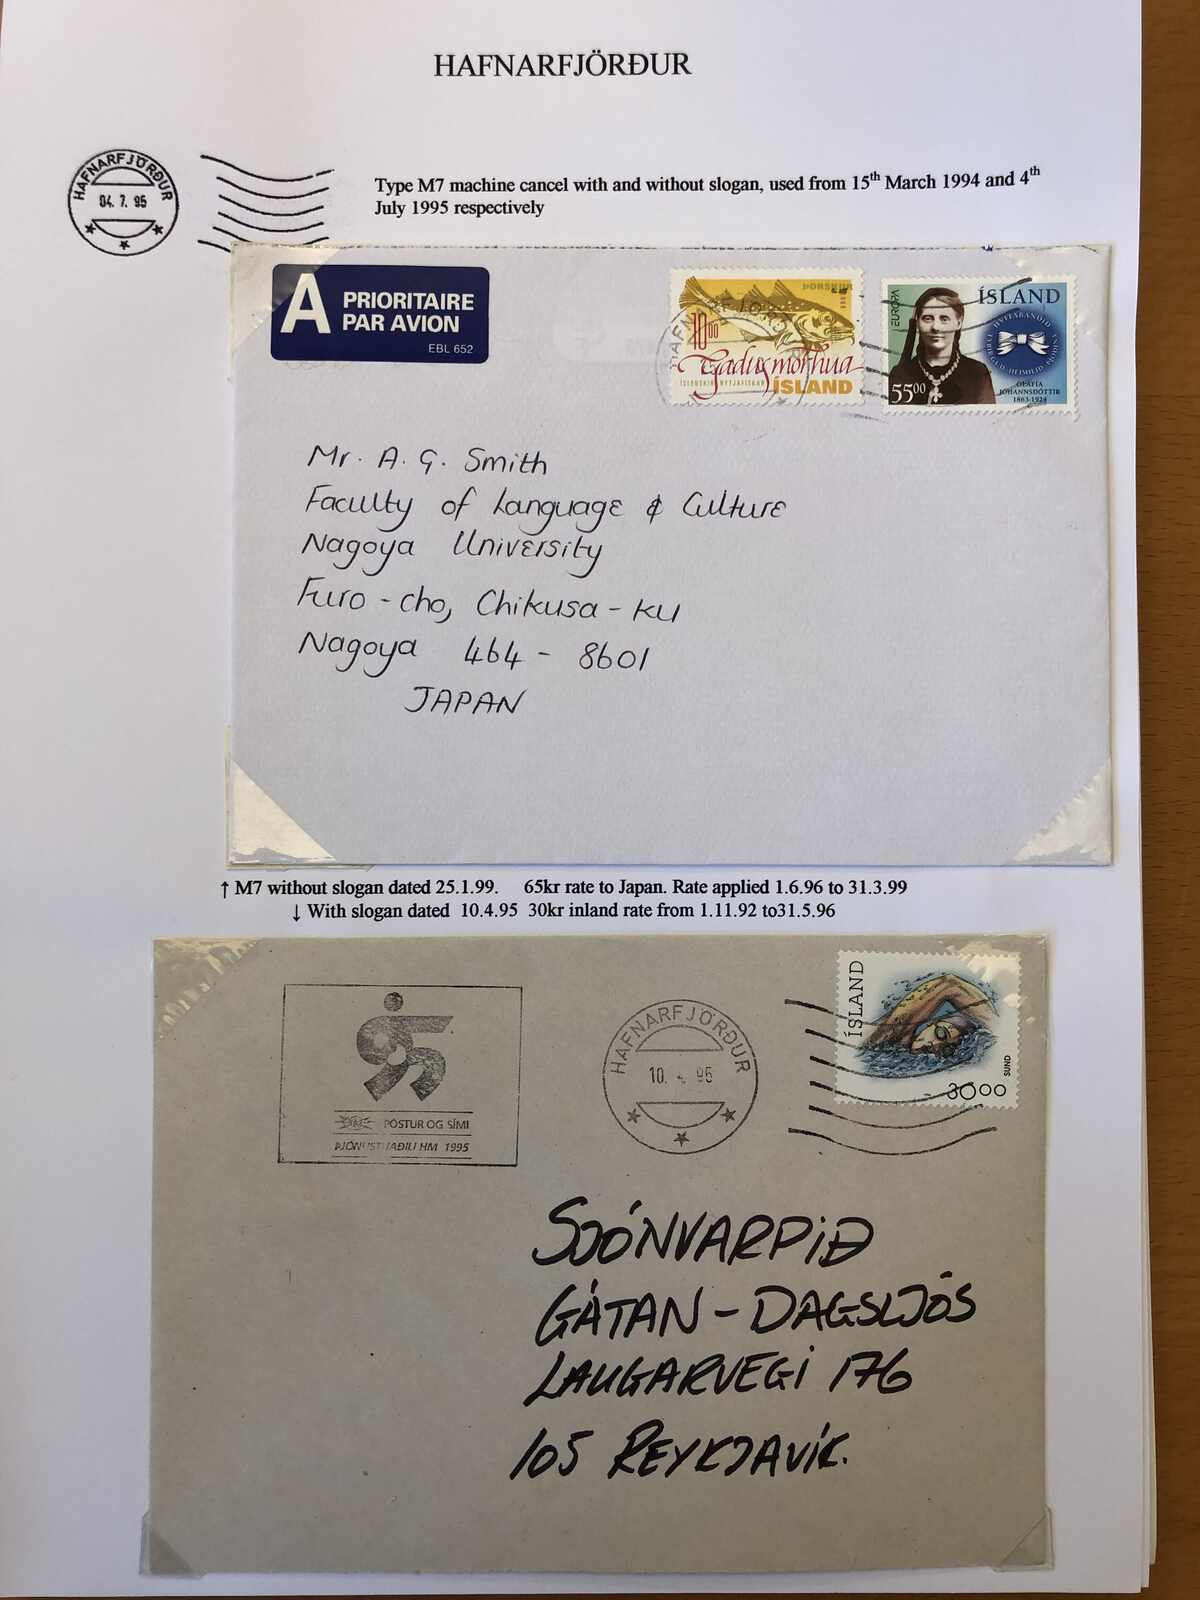 HAFNARFJÖRÐUR
HAFNARFJÖRÐUR
04. 7. 95
Type M7 machine cancel with and without slogan, used from 15th March 1994 and 4th
July 1995 respectively
A PRIORITAIRE
PAR AVION
EBL 652
ÞORSKUR
1000
Gadus morhua
ÍSLENSKIR NYTJAFISKAR
ÍSLAND
EUROPA
ÍSLAND
HVÍTABANDIÐ
5500
ÓLAFÍA
JÓHANNSDÓTTIR
1863-1924
Mr. A. G. Smith
Faculty of Language & Culture
Nagoya University
Furo-cho, Chikusa-ku
Nagoya 464-8601
JAPAN
↑ M7 without slogan dated 25.1.99. 65kr rate to Japan. Rate applied 1.6.96 to 31.3.99
↓ With slogan dated 10.4.95 30kr inland rate from 1.11.92 to31.5.96
PÓSTUR OG SÍMI
ÞJÓNUSTUAÐILI HM 1995
HAFNARFJÖRÐUR
10. 4 95
ÍSLAND
SUND
3000
SJÓNVARPIÐ
GÁTAN - DAGSLJÓS
LAUGARVEGI 176
105 REYKJAVÍK.